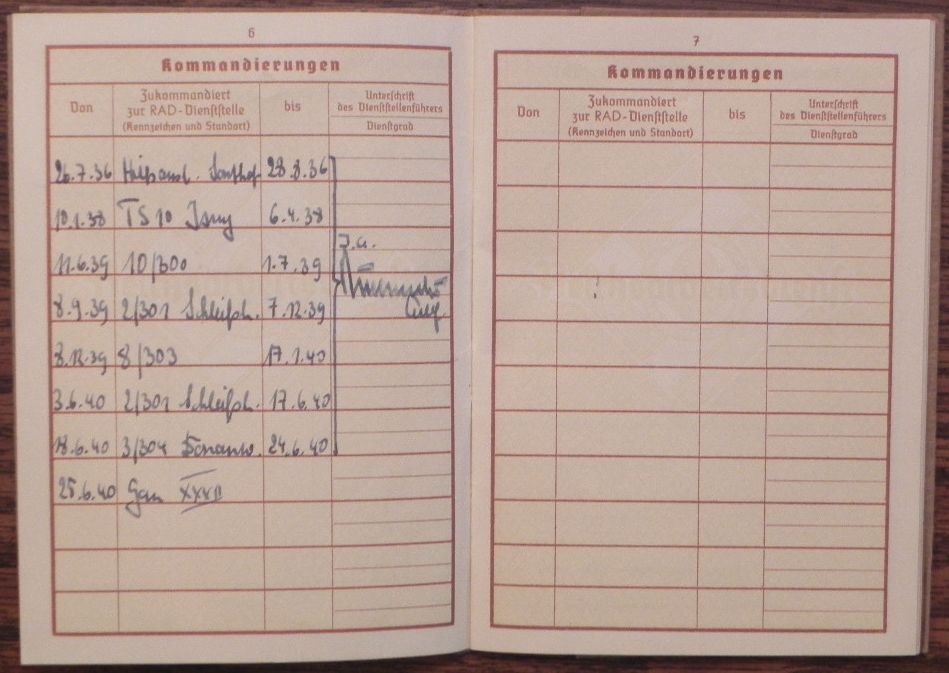 6
Kommandierungen
Von
Zukommandiert
zur RAD-Dienststelle
(Kennzeichen und Standort)
bis
Unterschrift
des Dienststellenführers
Dienstgrad
26.7.36 28.8.36
10.1.38 TS 10 Isny 6.4.38
J.A.
11.6.39 10/300 1.7.39
8.9.39 2/301 Schleißh. 7.12.39
8.12.39 8/303 17.1.40
3.6.40 2/301 Schleißh. 17.6.40
18.6.40 3/304 24.6.40
25.6.40 Gau
7
Kommandierungen
Von
Zukommandiert
zur RAD-Dienststelle
(Kennzeichen und Standort)
bis
Unterschrift
des Dienststellenführers
Dienstgrad